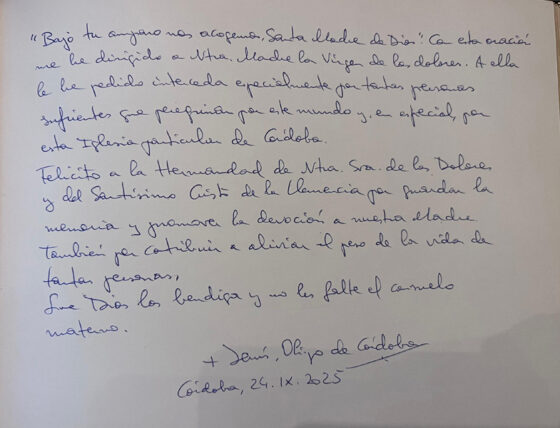 "Bajo tu amparo nos acogemos, Santa Madre de Dios". Con esta oración
me he dirigido a Ntra. Madre la Virgen de los dolores. A ella
le he pedido interceda especialmente por tantas personas
sufrientes que peregrinan por este mundo y, en especial, por
esta Iglesia particular de Córdoba.
Felicito a la Hermandad de Ntra. Sra. de los Dolores
y del Santísimo Cristo de la Clemencia por guardar la
memoria y promover la devoción a nuestra Madre.
También por contribuir a aliviar el peso de la vida de
tantas personas.
Que Dios los bendiga y no les falte el consuelo
materno.
+ Jesús, Obispo de Córdoba
Córdoba, 24.IX.2025